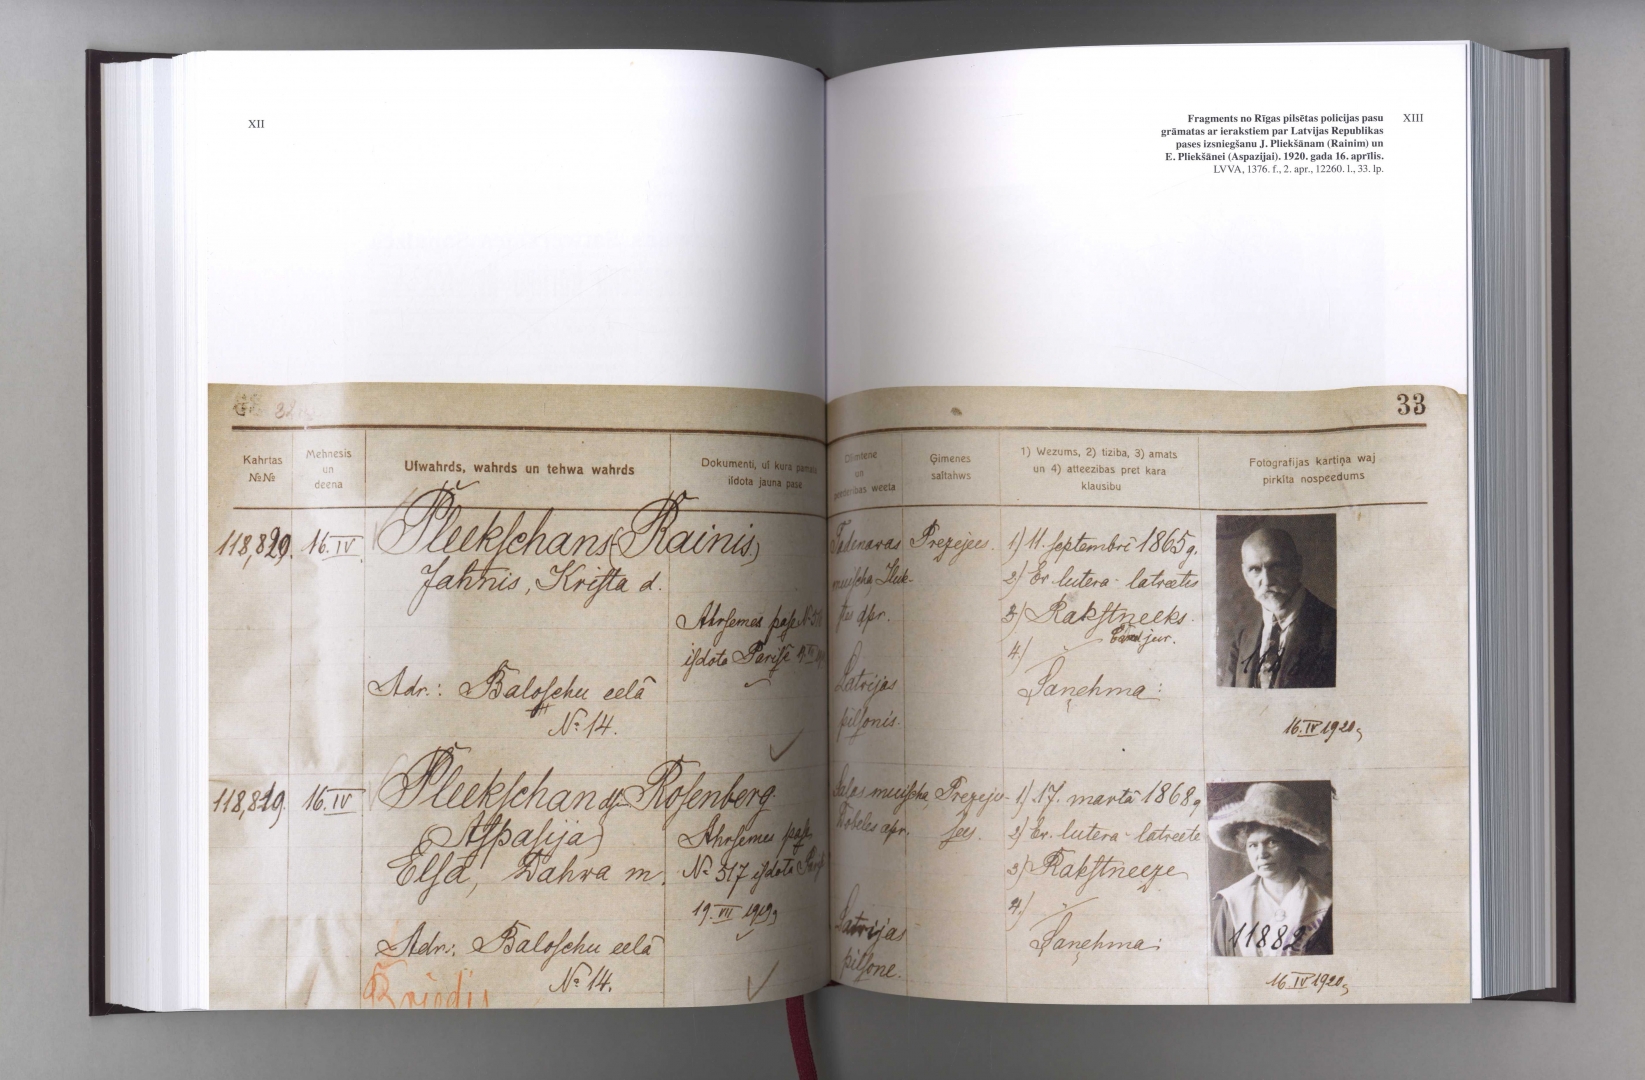 XII
XIII
Fragments no Rīgas pilsētas policijas pasu
grāmatas ar ierakstiem par Latvijas Republikas
pases izsniegšanu J. Pliekšānam (Rainim) un
E. Pliekšānei (Aspazijai). 1920. gada 16. aprīlis.
LVVA, 1376. f., 2. apr., 12260. l., 33. lp.
33
Kahrtas
№№
Mehnesis
un
deena
Uſwahrds, wahrds un tehwa wahrds
Dokumenti, uſ kura pamata
iſdota jauna pase
Dſimtene
un
peederibas weeta
Ģimenes
saītahws
1) Wezums, 2) tiziba, 3) amats
un 4) atteezibas pret kara
klausibu
Fotografijas kartiņa waj
pirkſta nospeedums
118,829.
16.IV
Pleekſchans (Rainis)
Jahnis, Kriſta d.
Ahrſemes paſe №
iſdota Pariſē
Adr.: Baloſchu eelā
№ 14.
Tadenavas
muiſcha, Iluk-
ſtes apr.
Latvijas
pilſonis.
Prezejees.
1) 11. septembrī 1865 g.
2) Ev. lutera-latveetis
3) Rakſtneeks.
Cand. jur.
4)
Saņehma:
16.IV 1920
16.IV
Pleekſchan dſ. Roſenberg
(Aſpaſija)
Elſa, Dahva m.
Ahrſemes paſe
№ 517 iſdota
19.VII 1919
Adr.: Baloſchu eelā
№ 14.
Salas muiſcha,
Dobeles apr.
Latvijas
pilſone.
Prezeju-
ſes.
1) 17. martā 1868 g
2) Ev. lutera-latveete
3) Rakſtneeze
4)
Saņehma:
1188
16.IV 1920